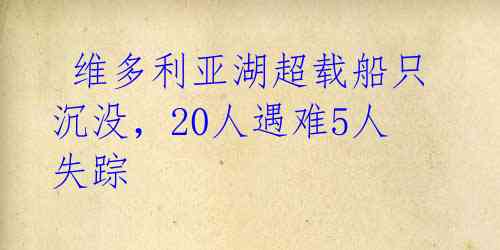 维多利亚湖超载船只
沉没，20人遇难5人
失踪